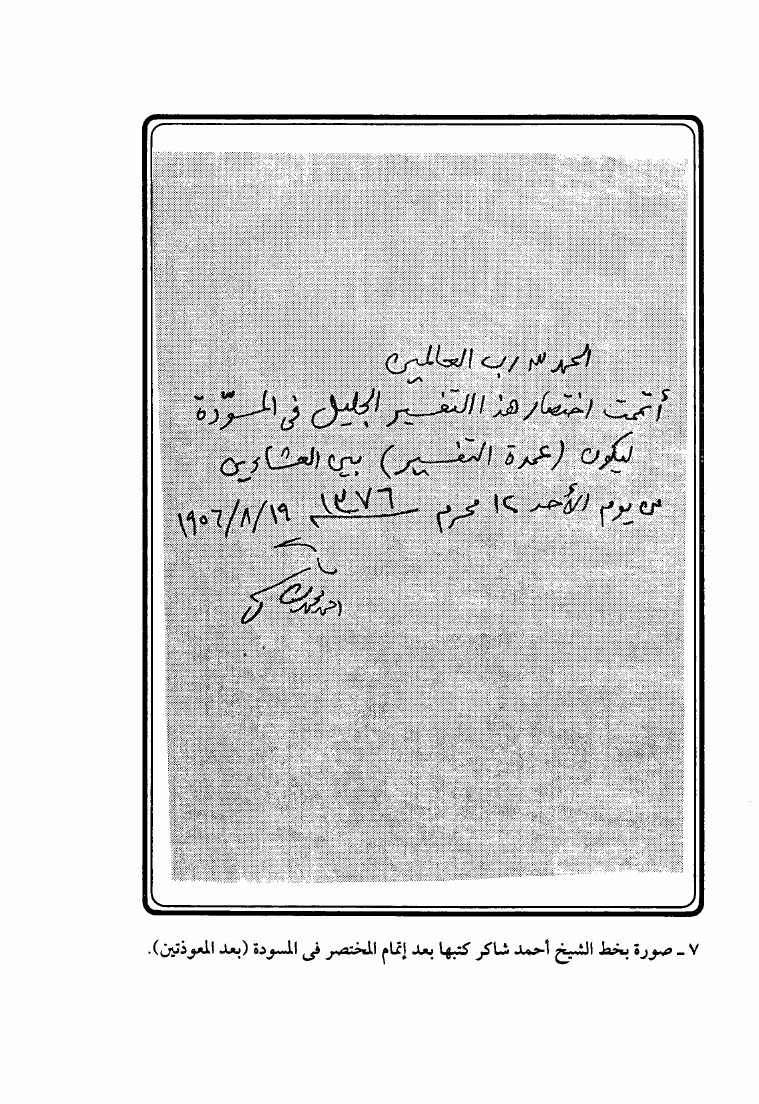 الحمد لله رب العالمين
أتممت اختصار هذا التفسير الجليل فى المسوّدة
ليكون (عمدة التفسير) بين العشاءين
من يوم الأحد ١٢ محرم ١٣٧٦ ١٩٥٦/٨/١٩
احمد محمد شاكر
٧ ـ صورة بخط الشيخ أحمد شاكر كتبها بعد إتمام المختصر فى المسودة (بعد المعوذتين).